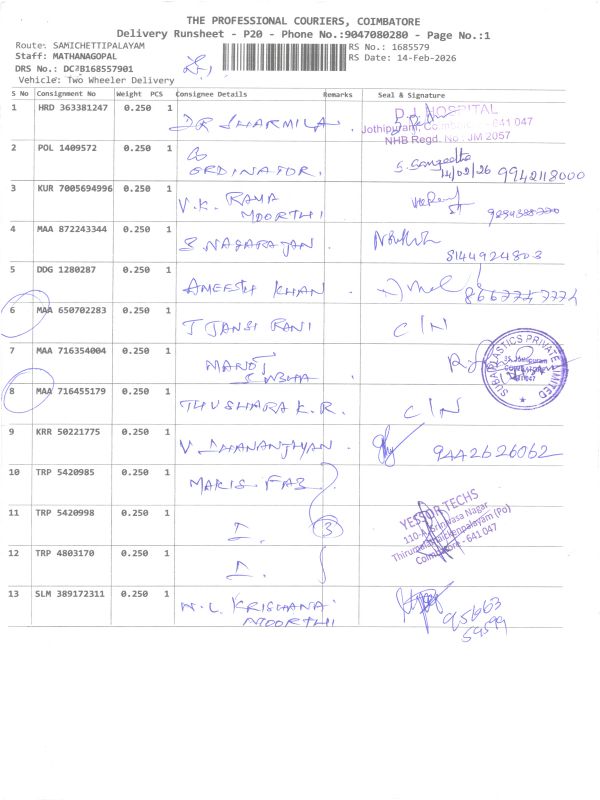 THE PROFESSIONAL COURIERS, COIMBATORE
Delivery Runsheet - P20 - Phone No.:9047080280 - Page No.:1
Route: SAMICHETTIPALAYAM
RS No.: 1685579
Staff: MATHANAGOPAL
RS Date: 14-Feb-2026
DRS No.: DC2B168557901
Vehicle: Two Wheeler Delivery
S No Consignment No Weight PCS Consignee Details Remarks Seal & Signature
1 HRD 363381247 0.250 1 DR SHARMILA. D.J. HOSPITAL
Jothipuram, Coimbatore - 641 047
NHB Regd. No. JM 2057
2 POL 1409572 0.250 1 CO S. Sangeetha
ORDINATOR. 14/02/26 9942118000
3 KUR 7005694996 0.250 1 V.K. RAMA
MOORTHI
4 MAA 872243344 0.250 1 S. NAGARAJAN.
8144924803
5 DDG 1280287 0.250 1 AMEESH KHAN.
6 MAA 650702283 0.250 1 J JANSI RANI C/N
7 MAA 716354004 0.250 1 MANOJ SUBHA PLASTICS PRIVATE LIMITED
35, Jothipuram
8 MAA 716455179 0.250 1 THUSHARA K.R. C/N
9 KRR 50221775 0.250 1 V. DHANANJHYAN. 9442626062
10 TRP 5420985 0.250 1 MARIS FAB
11 TRP 5420998 0.250 1 3 YESSOR TECHS
110-A, Srinivasa Nagar
Thirumalainaickenpalayam (Po)
Coimbatore - 641 047
12 TRP 4803170 0.250 1
13 SLM 389172311 0.250 1 N.L KRISHANA
MOORTHI 95663
59599